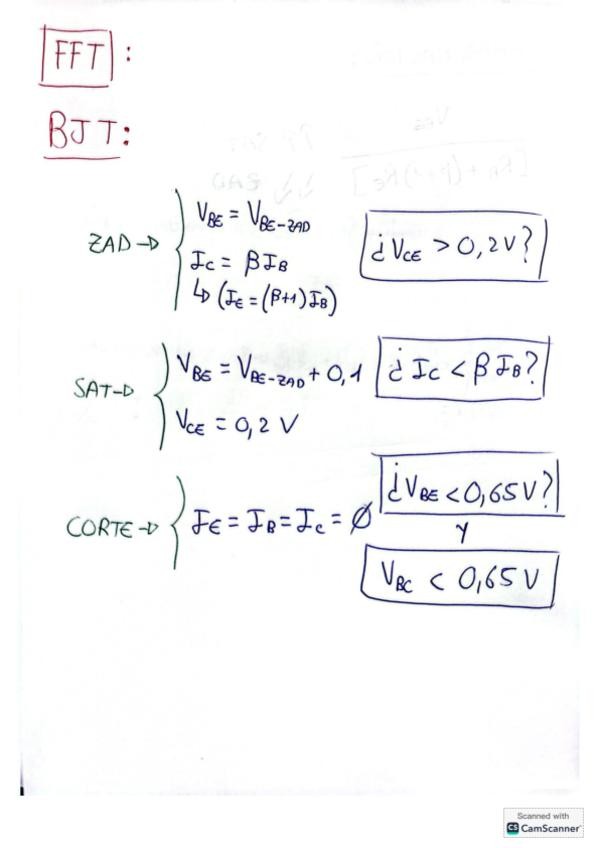 FFT:
BJT:
ZAD → { V_BE = V_BE-ZAD
I_C = βI_B
↳ (I_E = (β+1)I_B)
¿V_CE > 0,2V?
SAT → { V_BE = V_BE-ZAD + 0,1
V_CE = 0,2 V
¿I_C < βI_B?
CORTE → { I_E = I_B = I_C = Ø
¿V_BE < 0,65V?
Y
V_BC < 0,65V
Scanned with
CS CamScanner